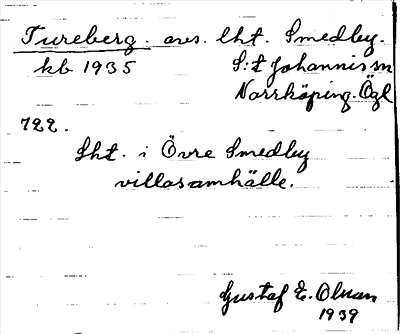 Tureberg. avs. lht. Smedby.
kb 1935 S:t Johannis sn
Norrköping. Ögl
722.
Lht. i Övre Smedby
villasamhälle.
Gustaf E. Olsson
1939